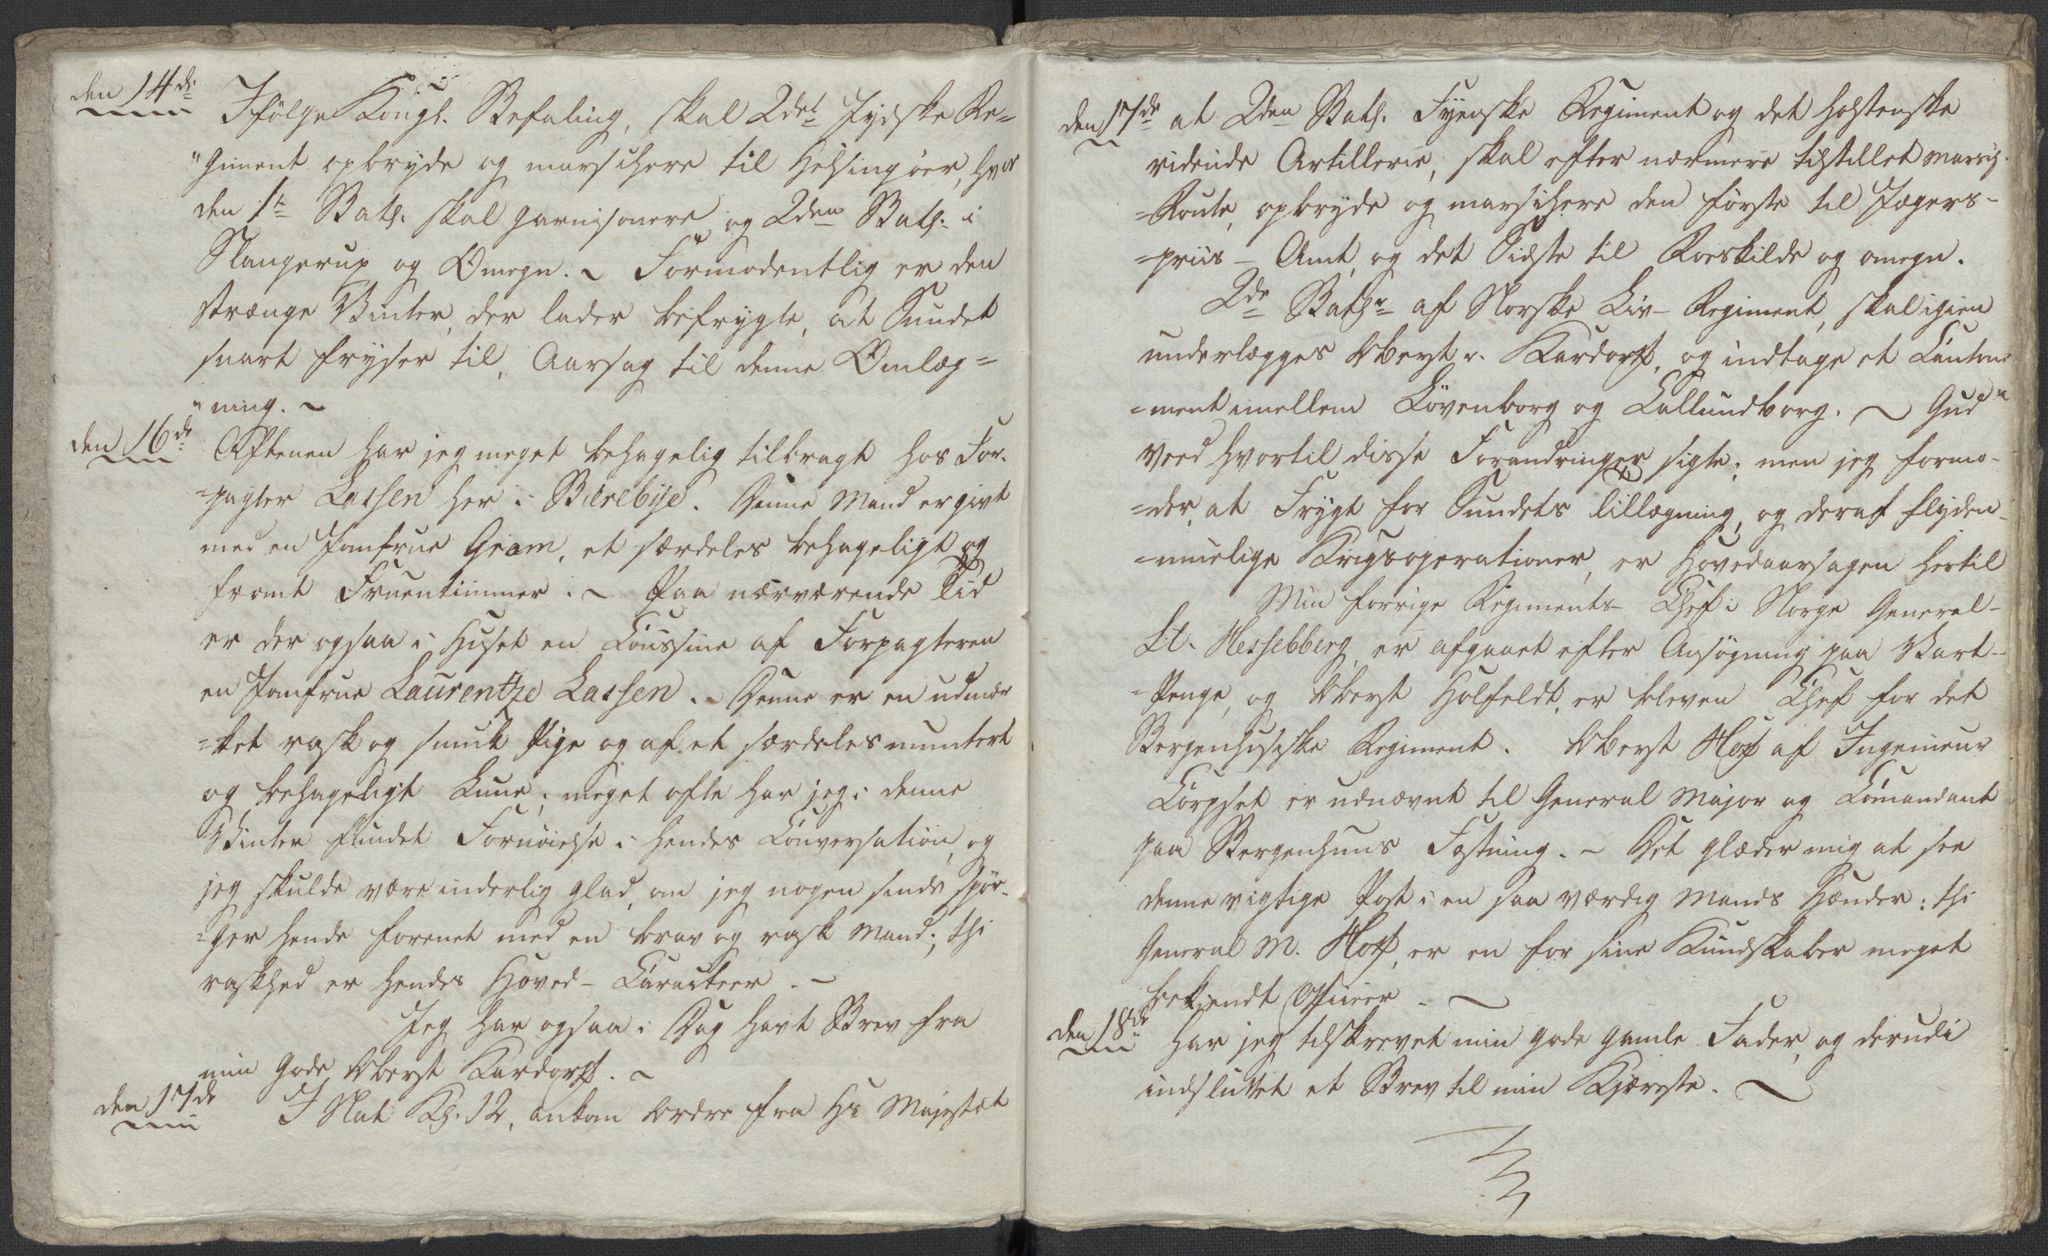 den 14de Ifølge Kongl. Befaling, skal 2det Jydske Re=
"giment opbryde og marschere til Helsingöer, hvor
den 1te Batl. skal garnisonere og 2den Batl. i
Slangerup og Omegn. ~ Formodentlig er den
strænge Vinter, der lader befrygte, at Sundet
snart fryser til, Aarsag til denne Omlæg=
"ning. ~
den 16de Aftenen har jeg meget behagelig tilbragt hos For-
=pagter Lassen her i Bierebÿe. Denne Mand er givt
med en Jomfrue Gram, et særdeles behageligt og
fromt Fruentimmer. ~ Paa nærværende Tid
er der ogsaa i Huset en Coussine af Forpagteren
en Jomfrue Laurentze Lassen. - Denne er en udmær
=ket rask og smuk Pige og af et særdeles muntert
og behageligt Lune; meget ofte har jeg i denne
Vinter fundet Fornöielse i hendes Conversation, og
jeg skulde være inderlig glad, om jeg nogen sinde spör-
=ger hende forenet med en brav og rask Mand; thi
raskhed er hendes Hoved-Caracteer. ~
Jeg har ogsaa i Dag havt Brev fra
min gode Oberst Kardorff. ~
den 17de I Nat Kl. 12, ankom Ordre fra Hs Majestæt
den 17de at 2den Batl. Fyenske Regiment og det holstenske
ridende Artillerie, skal efter nærmere tilstillet Marsch-
=Route, opbryde og marschere den förste til Jægers-
=priis-Amt, og det Sidste til Roeskilde og omegn.
2de Batlr af Norske Liv-Regiment, skal igien
underlægges Oberst v. Kardorff, og indtage et Canton=
=ment imellem Lövenborg og Callundborg. ~ Gud
veed hvortil disse Forandringer sigte; men jeg formo-
=der, at Frygt for Sundets Tillægning, og deraf flyden-
=muelige Krigsoperationer, er Hovedaarsagen hertil
Min forrige Regiments-Chef i Norge General-
Lt. Hesselberg, er afgaaet efter Ansögning paa Vart-
=Penge, og Oberst Holfeldt, er bleven Chef for det
Bergenhusiske Regiment. Oberst Hoff af Ingenieur
Corpset er udnævnt til General Major og Comandant
paa Bergenhuus Fæstning. ~ Det glæder mig at see
denne vigtige Post i en saa værdig Mands Hænder: thi
General M. Hoff, er en for sine Kundskaber meget
bekjendt Officer. ~
den 18de har jeg tilskrevet min gode gamle Fader, og derudi
indsluttet et Brev til min Kjæreste. ~